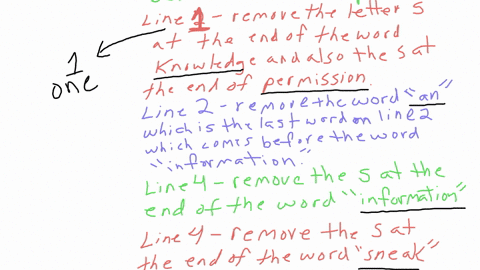 Line 1 - remove the letter s
at the end of the word
1
one
Knowledge and also the s at
the end of permission.
Line 2 - remove the word "an"
which is the last word on line 2
which comes before the word
"information."
Line 4 - remove the s at the
end of the word "information"
Line 4 - remove the s at
the end of the word "sneak"